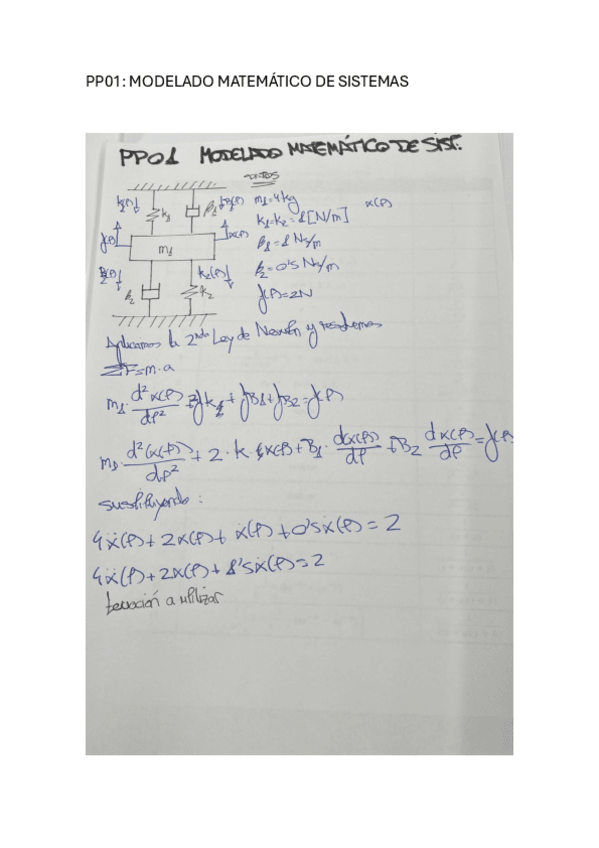 PP01: MODELADO MATEMÁTICO DE SISTEMAS
PP01 MODELADO MATEMÁTICO DE SIST.
DATOS
m1=4kg
x(t)
k1=k2=1[N/m]
β1=1 Ns/m
β2=0'5 Ns/m
f(t)=2N
k1
β1
f(t)
x(t)
m1
k2(t)
k2
Aplicamos la 2nda Ley de Newton y resolvemos
ΣF=m·a
m1· d²x(t)/dt² + fk + fB1 + fB2 = f(t)
m1· d²(x(t))/dt² + 2·k·x(t) + B1· dx(t)/dt + B2 dx(t)/dt = f(t)
sustituyendo:
4ẍ(t) + 2x(t) + ẋ(t) + 0'5ẋ(t) = 2
4ẍ(t) + 2x(t) + 1'5ẋ(t) = 2
Ecuación a utilizar